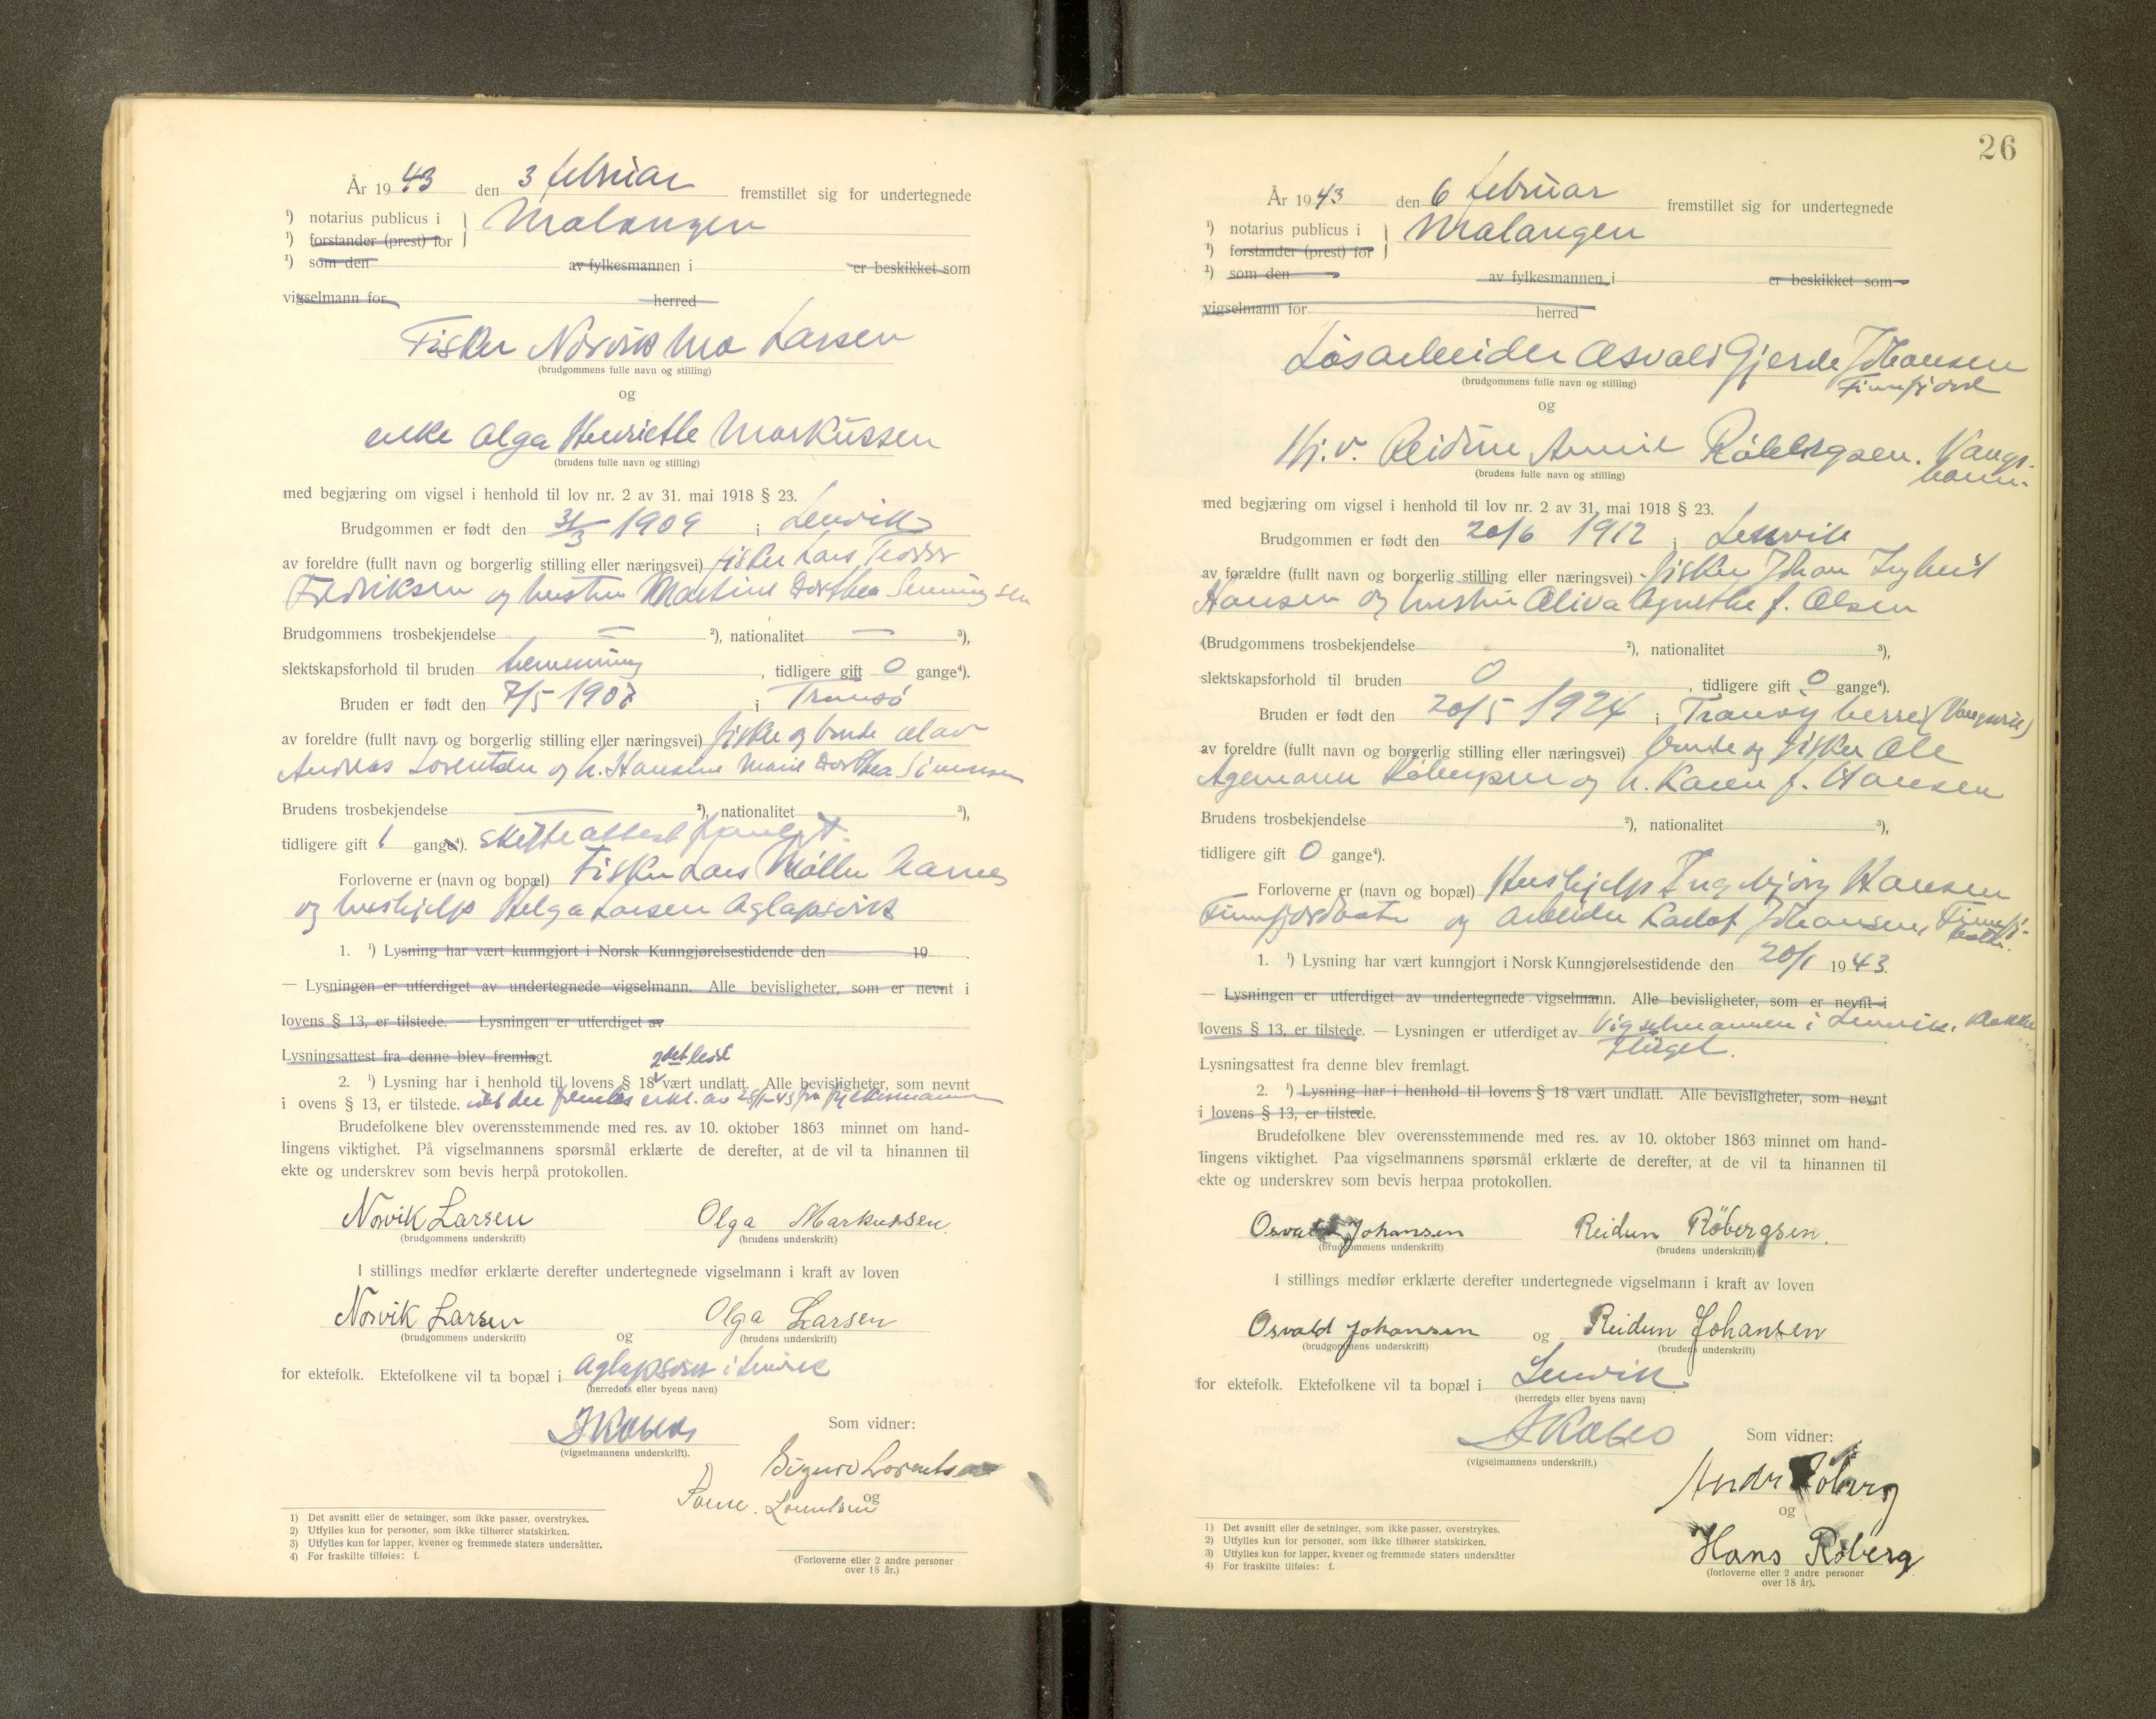 År 1943 den 3 februar fremstillet sig for undertegnede
¹) notarius publicus i } Malangen
¹) forstander (prest) for
¹) som den av fylkesmannen i er beskikket som
vigselmann for herred
Fisker Norvik Larsen
(brudgommens fulle navn og stilling)
og
enke Olga Henriette Markussen
(brudens fulle navn og stilling)
med begjæring om vigsel i henhold til lov nr. 2 av 31. mai 1918 § 23.
Brudgommen er født den 31/3 1909 i Lenvik
av foreldre (fullt navn og borgerlig stilling eller næringsvei) fisker Lars Peder
Fredriksen og hustru Martine Dorthea Henningsen
Brudgommens trosbekjendelse — ²), nationalitet — ³),
slektskapsforhold til bruden , tidligere gift 0 gange⁴).
Bruden er født den 7/5 1907 i Tromsø
av foreldre (fullt navn og borgerlig stilling eller næringsvei) fisker og bonde Olav
Andreas Lorentsen og h. Hansine Marie Dorthea Simonsen
Brudens trosbekjendelse ²), nationalitet ³),
tidligere gift 1 gange⁴). skifteattest fremlagt.
Forloverne er (navn og bopæl) Fisker Lars Møller
og hushjelp Helga Larsen Aglapsvik
1. ¹) Lysning har vært kunngjort i Norsk Kunngjørelsestidende den 19 .
— Lysningen er utferdiget av undertegnede vigselmann. Alle bevisligheter, som er nevnt i
lovens § 13, er tilstede. — Lysningen er utferdiget av
Lysningsattest fra denne blev fremlagt.
2det ledd
2. ¹) Lysning har i henhold til lovens § 18 vært undlatt. Alle bevisligheter, som nevnt
i ovens § 13, er tilstede. idet der fremlas erkl. av 28/1-43 fra fylkesmannen
Brudefolkene blev overensstemmende med res. av 10. oktober 1863 minnet om hand-
lingens viktighet. På vigselmannens spørsmål erklærte de derefter, at de vil ta hinannen til
ekte og underskrev som bevis herpå protokollen.
Norvik Larsen Olga Markussen.
(brudgommens underskrift) (brudens underskrift)
I stillings medfør erklærte derefter undertegnede vigselmann i kraft av loven
Norvik Larsen og Olga Larsen
(brudgommens underskrift) (brudens underskrift)
for ektefolk. Ektefolkene vil ta bopæl i Aglapsvik i Lenvik
(herredets eller byens navn)
Som vidner:
(vigselmannens underskrift).
Sigurd Lorentsen
og
Lorentsen
1) Det avsnitt eller de setninger, som ikke passer, overstrykes.
2) Utfylles kun for personer, som ikke tilhører statskirken.
3) Utfylles kun for lapper, kvener og fremmede staters undersåtter.
4) For fraskilte tilføies: f.
(Forloverne eller 2 andre personer
over 18 år.)
26
År 1943 den 6 februar fremstillet sig for undertegnede
¹) notarius publicus i } Malangen
¹) forstander (prest) for
¹) som den av fylkesmannen i er beskikket som
vigselmann for herred
Løsarbeider Osvald Gjerde Johansen
Finnfjord
(brudgommens fulle navn og stilling)
og
Hj.v. Reidun Annie Røbergsen. Vangs-
havn.
(brudens fulle navn og stilling)
med begjæring om vigsel i henhold til lov nr. 2 av 31. mai 1918 § 23.
Brudgommen er født den 20/6 1912 i Lenvik
av forældre (fullt navn og borgerlig stilling eller næringsvei) fisker Johan Ingbert
Hansen og hustru Oliva Agnethe f. Olsen
(Brudgommens trosbekjendelse ²), nationalitet ³),
slektskapsforhold til bruden 0 , tidligere gift 0 gange⁴).
Bruden er født den 20/5 1924 i Tranøy herred (Vangsvik)
av foreldre (fullt navn og borgerlig stilling eller næringsvei) bonde og fisker Ole
Agemann Røbergsen og h. Karen f. Hansen
Brudens trosbekjendelse ²), nationalitet ³),
tidligere gift 0 gange⁴).
Forloverne er (navn og bopæl) Hushjelp Ingebjørg Hansen
Finnfjordbotn og arbeider Karlot Johansen, Finnfj.-
botn.
1. ¹) Lysning har vært kunngjort i Norsk Kunngjørelsestidende den 20/1 1943.
— Lysningen er utferdiget av undertegnede vigselmann. Alle bevisligheter, som er nevnt i
lovens § 13, er tilstede. — Lysningen er utferdiget av Vigselmannen i Lenvik, Klokker
Flaget.
Lysningsattest fra denne blev fremlagt.
2. ¹) Lysning har i henhold til lovens § 18 vært undlatt. Alle bevisligheter, som nevnt
i lovens § 13, er tilstede.
Brudefolkene blev overensstemmende med res. av 10. oktober 1863 minnet om hand-
lingens viktighet. Paa vigselmannens spørsmål erklærte de derefter, at de vil ta hinannen til
ekte og underskrev som bevis herpaa protokollen.
Osvald Johansen Reidun Røbergsen.
(brudgommens underskrift) (brudens underskrift)
I stillings medfør erklærte derefter undertegnede vigselmann i kraft av loven
Osvald Johansen og Reidun Johansen
(brudgommens underskrift) (brudens underskrift)
for ektefolk. Ektefolkene vil ta bopæl i Lenvik
(herredets eller byens navn)
Som vidner:
(vigselmannens underskrift.)
Andr Røberg
og
Hans Røberg
(forloverne eller 2 andre personer
over 18 år).
1) Det avsnitt eller de setninger, som ikke passer, overstrykes.
2) Utfylles kun for personer, som ikke tilhører statskirken.
3) Utfylles kun for lapper, kvener og fremmede staters undersåtter
4) For fraskilte tilføies: f.